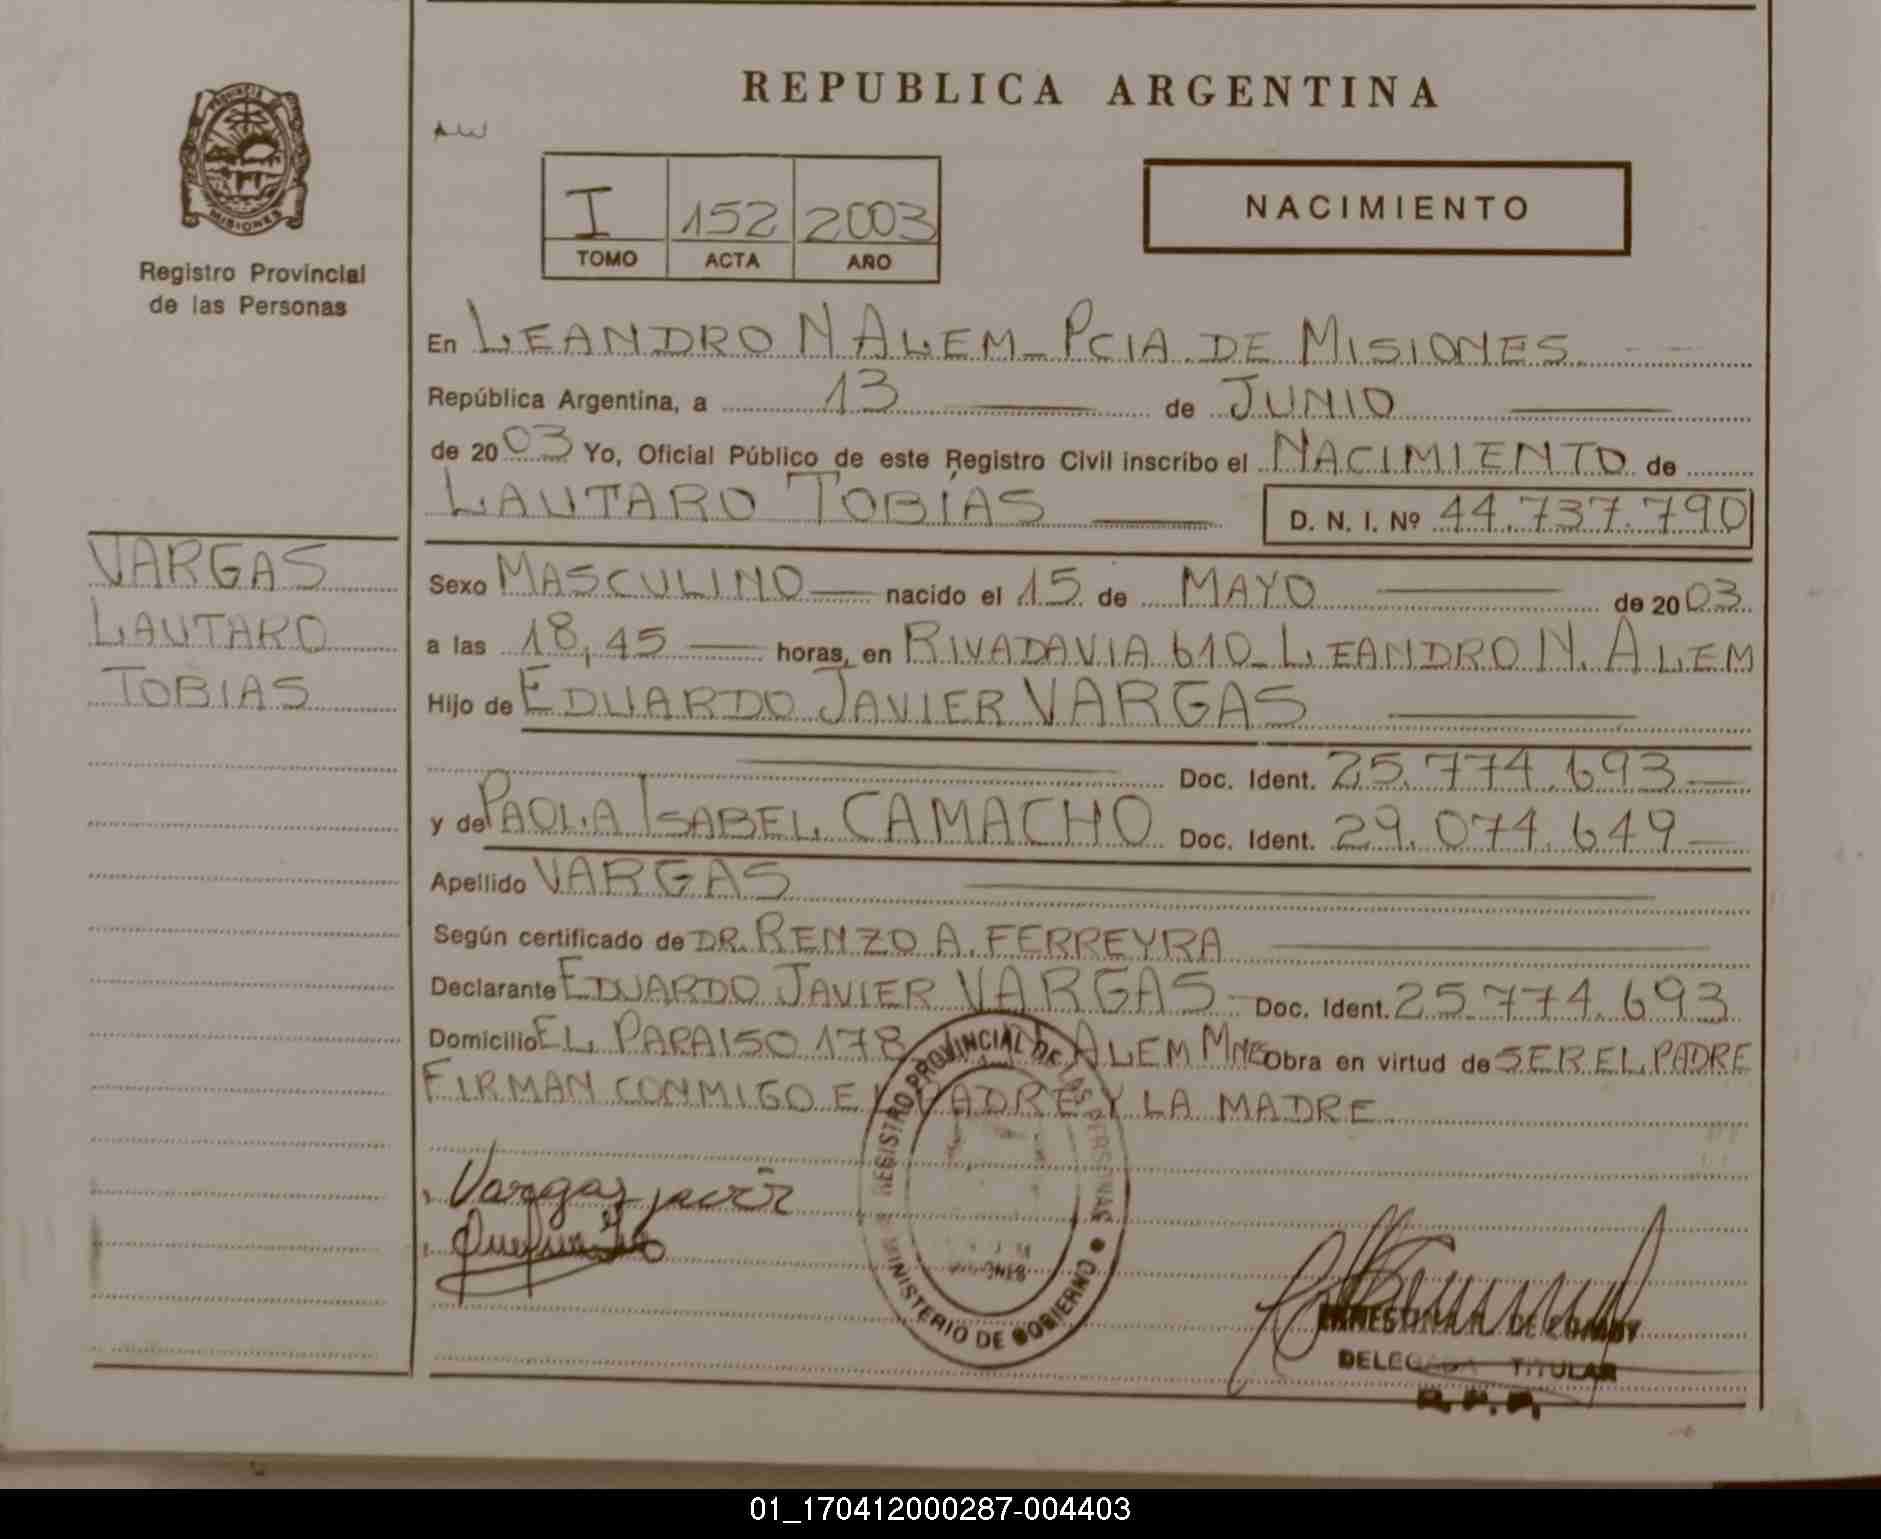 REPUBLICA ARGENTINA
PROVINCIA DE MISIONES
Registro Provincial
de las Personas
I 152 2003
TOMO ACTA AÑO
NACIMIENTO
En LEANDRO N ALEM - PCIA. DE MISIONES
República Argentina, a 13 de JUNIO
de 2003 Yo, Oficial Público de este Registro Civil inscribo el NACIMIENTO de
LAUTARO TOBÍAS D. N. I. Nº 44.737.790
VARGAS
LAUTARO
TOBIAS
Sexo MASCULINO nacido el 15 de MAYO de 2003
a las 18,45 horas, en RIVADAVIA 610 - LEANDRO N. ALEM
Hijo de EDUARDO JAVIER VARGAS
Doc. Ident. 25.774.693
y de PAOLA ISABEL CAMACHO Doc. Ident. 29.074.649
Apellido VARGAS
Según certificado de DR. RENZO A. FERREYRA
Declarante EDUARDO JAVIER VARGAS - Doc. Ident. 25.774.693
Domicilio EL PARAISO 178 ALEM Mnes Obra en virtud de SER EL PADRE
FIRMAN CONMIGO EL PADRE Y LA MADRE
Vargas javier
REGISTRO PROVINCIAL DE LAS PERSONAS
MINISTERIO DE GOBIERNO
DELEGADA TITULAR
R. P. P.
01_170412000287-004403